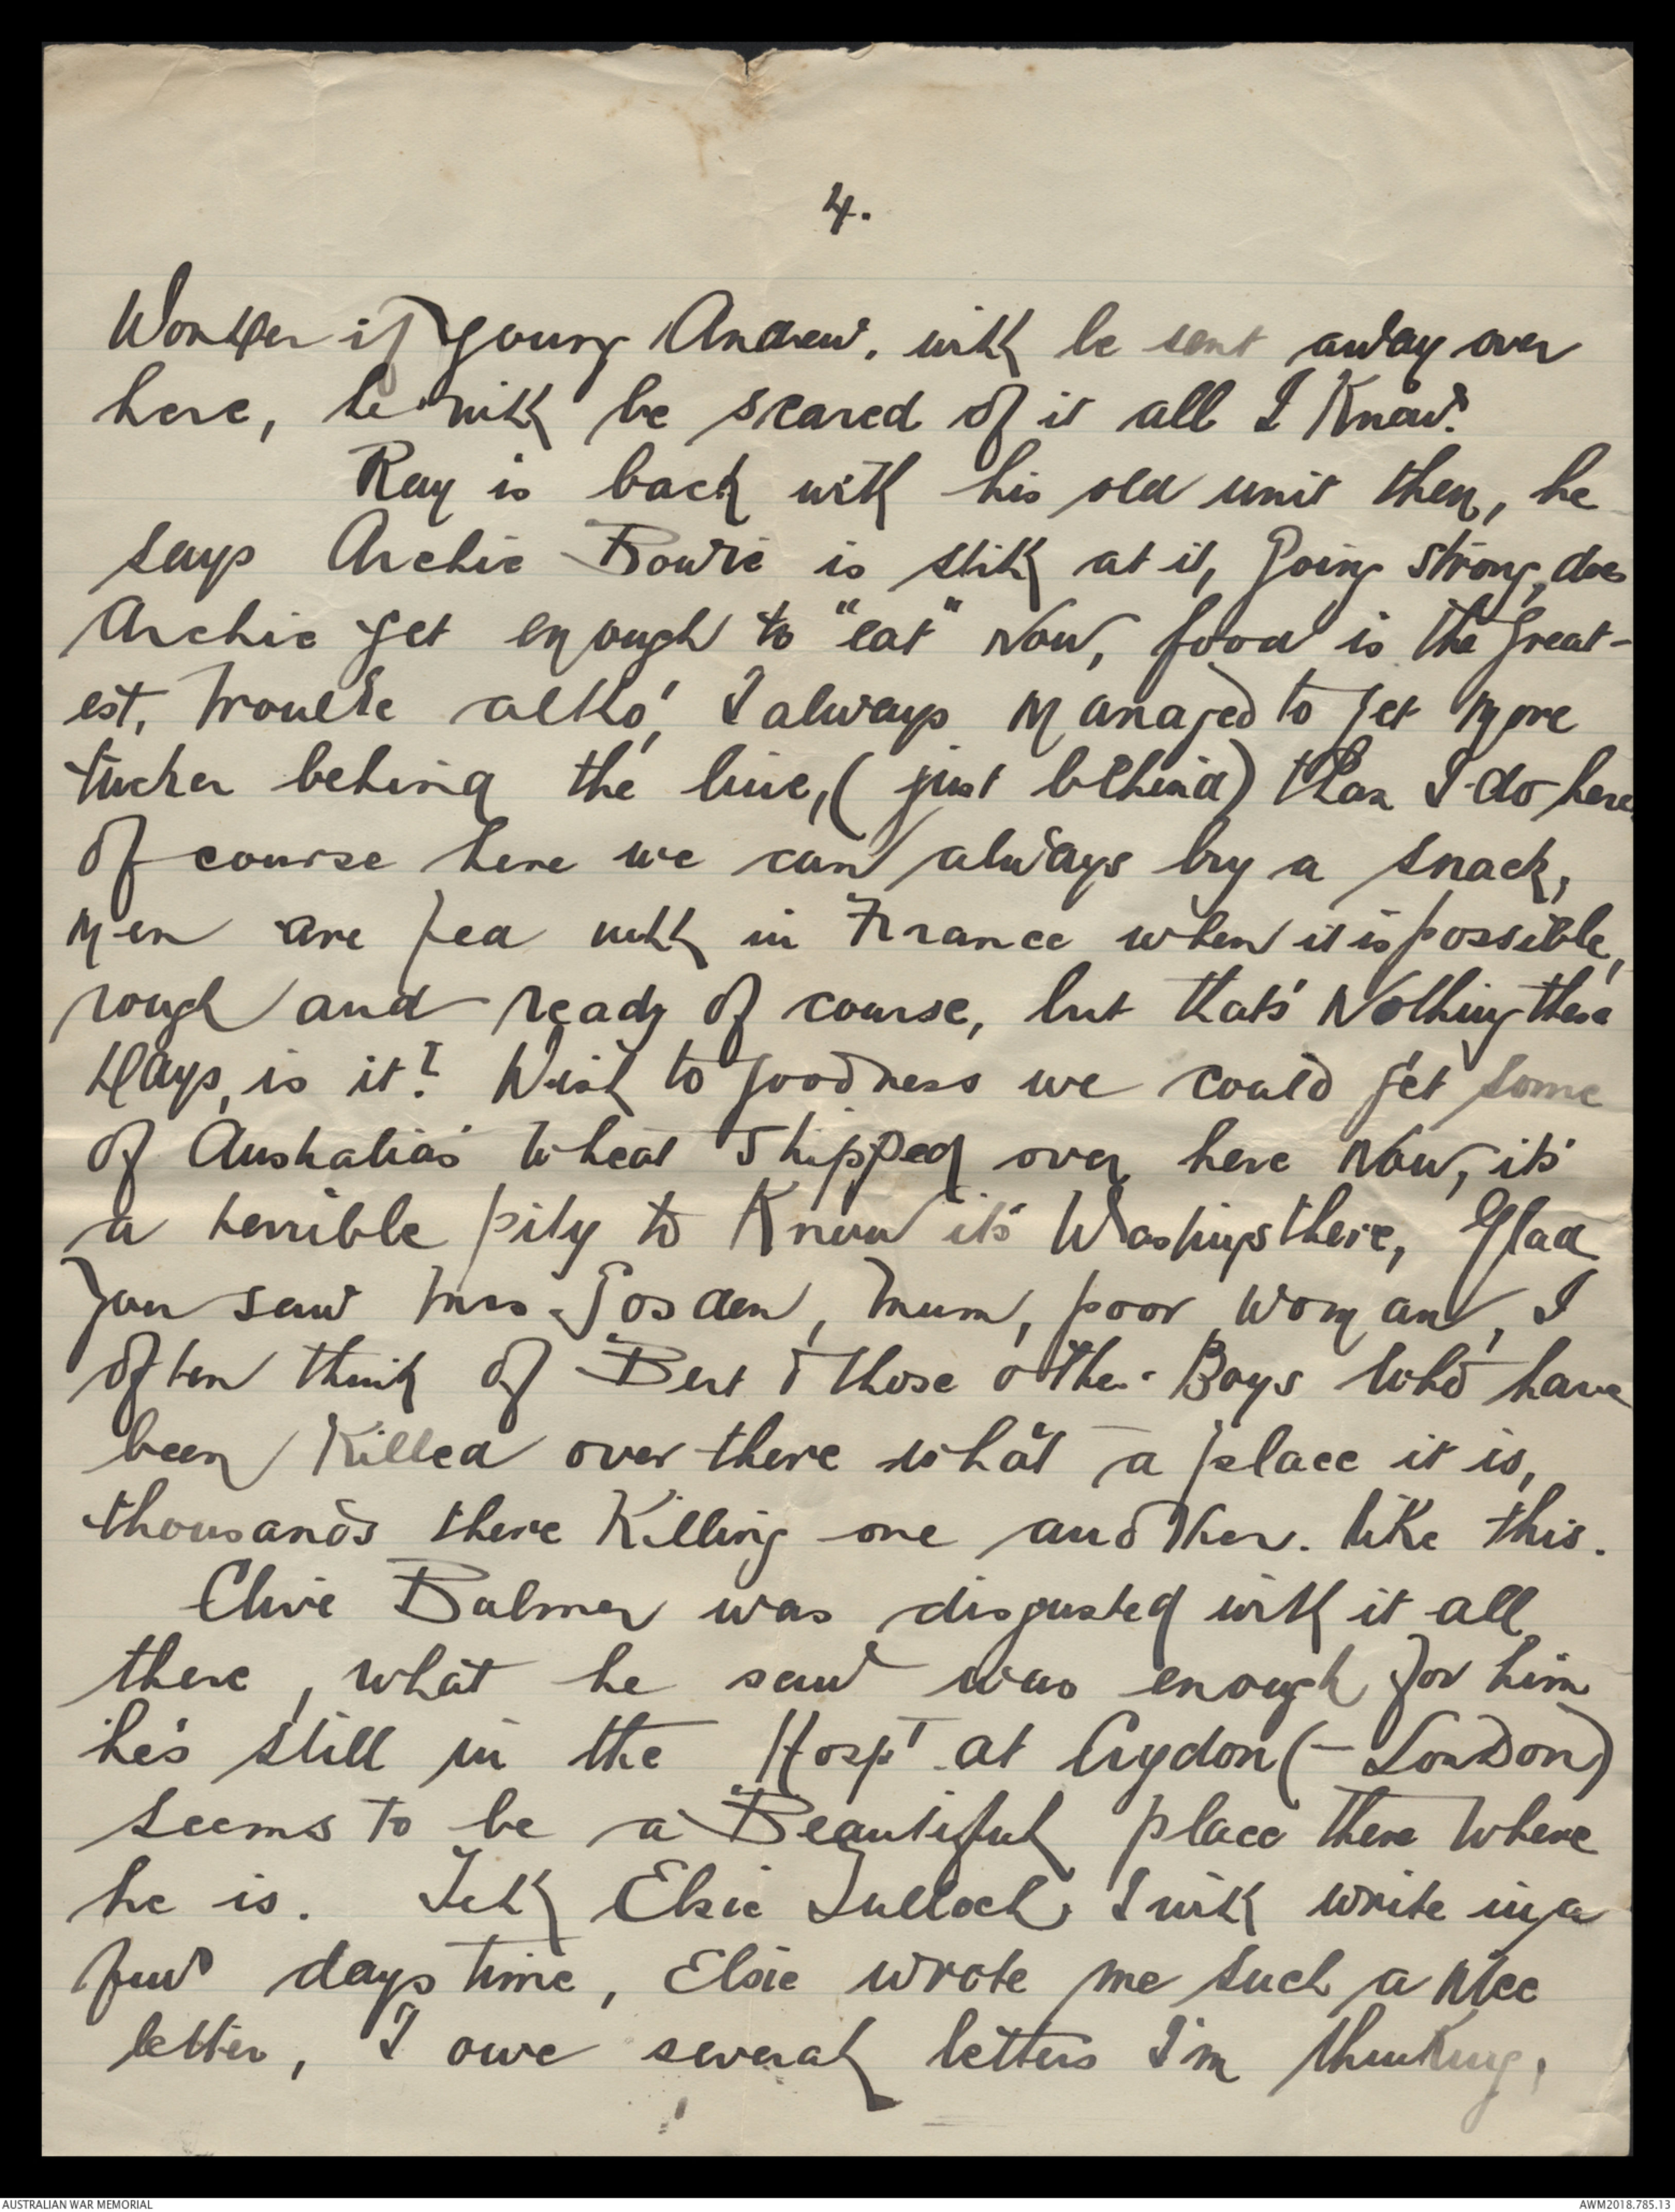 4.
Wonder if young Andrew. will be sent away over
here, he will be scared of it all I Know.
Ray is back with his old unit then, he
says Archie Bowie is still at it, going strong, does
Archie get enough to "eat" Now, food is the great-
est, trouble altho', I always managed to get more
tucker behind the line, (just behind) than I do here
of course here we can always buy a snack,
men are fed well in France when it is possible,
rough and ready of course, but that's Nothing these
days, is it? Wish to goodness we could get some
of Australia's wheat shipped over here Now, it's
a terrible pity to Know it's there, Glad
you saw Mrs Gosden, Mum, poor woman, I
often think of Bert & those other Boys who have
been Killed over there what a place it is,
thousands there Killing one another. like this.
Clive Balmer was disgusted with it all
there, what he saw was enough for him
he's still in the Hospt at Crydon (- London)
seems to be a Beautiful place there where
he is. Tell Elsie Tulloch I will write in a
few days time, Elsie wrote me such a nice
letter, I owe several letters I'm thinking,
AUSTRALIAN WAR MEMORIAL
AWM2018.785.13